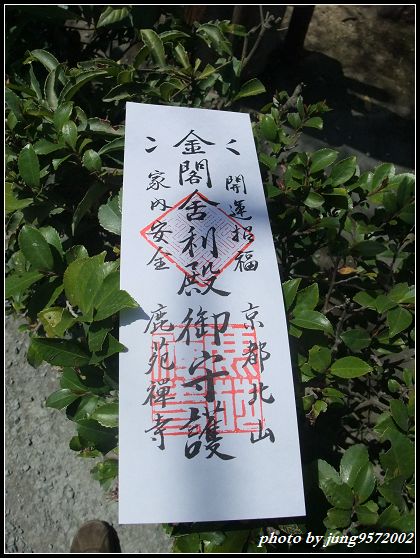 開運招福 京都北山
金閣舎利殿御守護
家内安全 鹿苑禅寺
photo by jung9572002